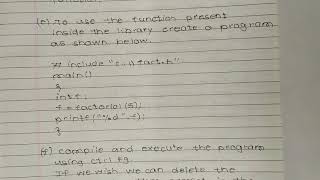 (e) To use the function present
inside the library create a program
as shown below.
include "c..\\fact.h"
main()
{
int f;
f = factorial (5);
printf("%d",f);
}
(f) compile and execute the program
using ctrl f9
If we wish we can delete the